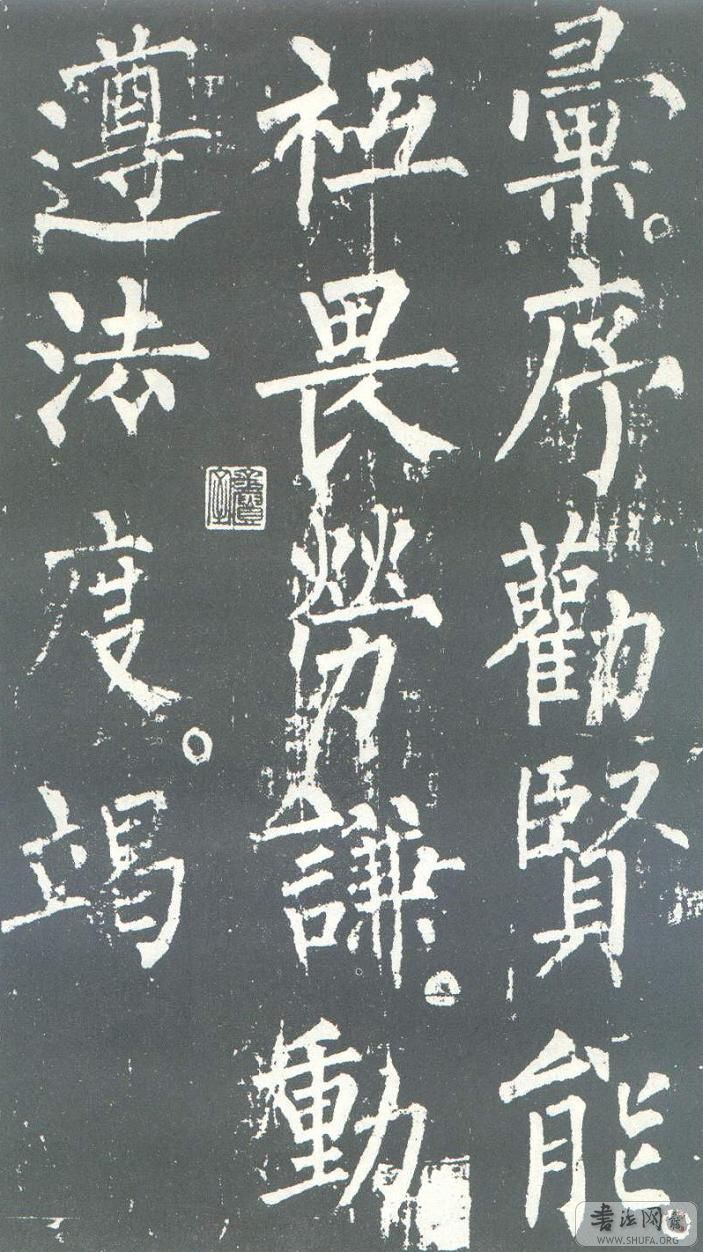 彙。序勸賢能
祗畏勞謙。動
遵法度。竭
書法网
WWW.SHUFA.ORG